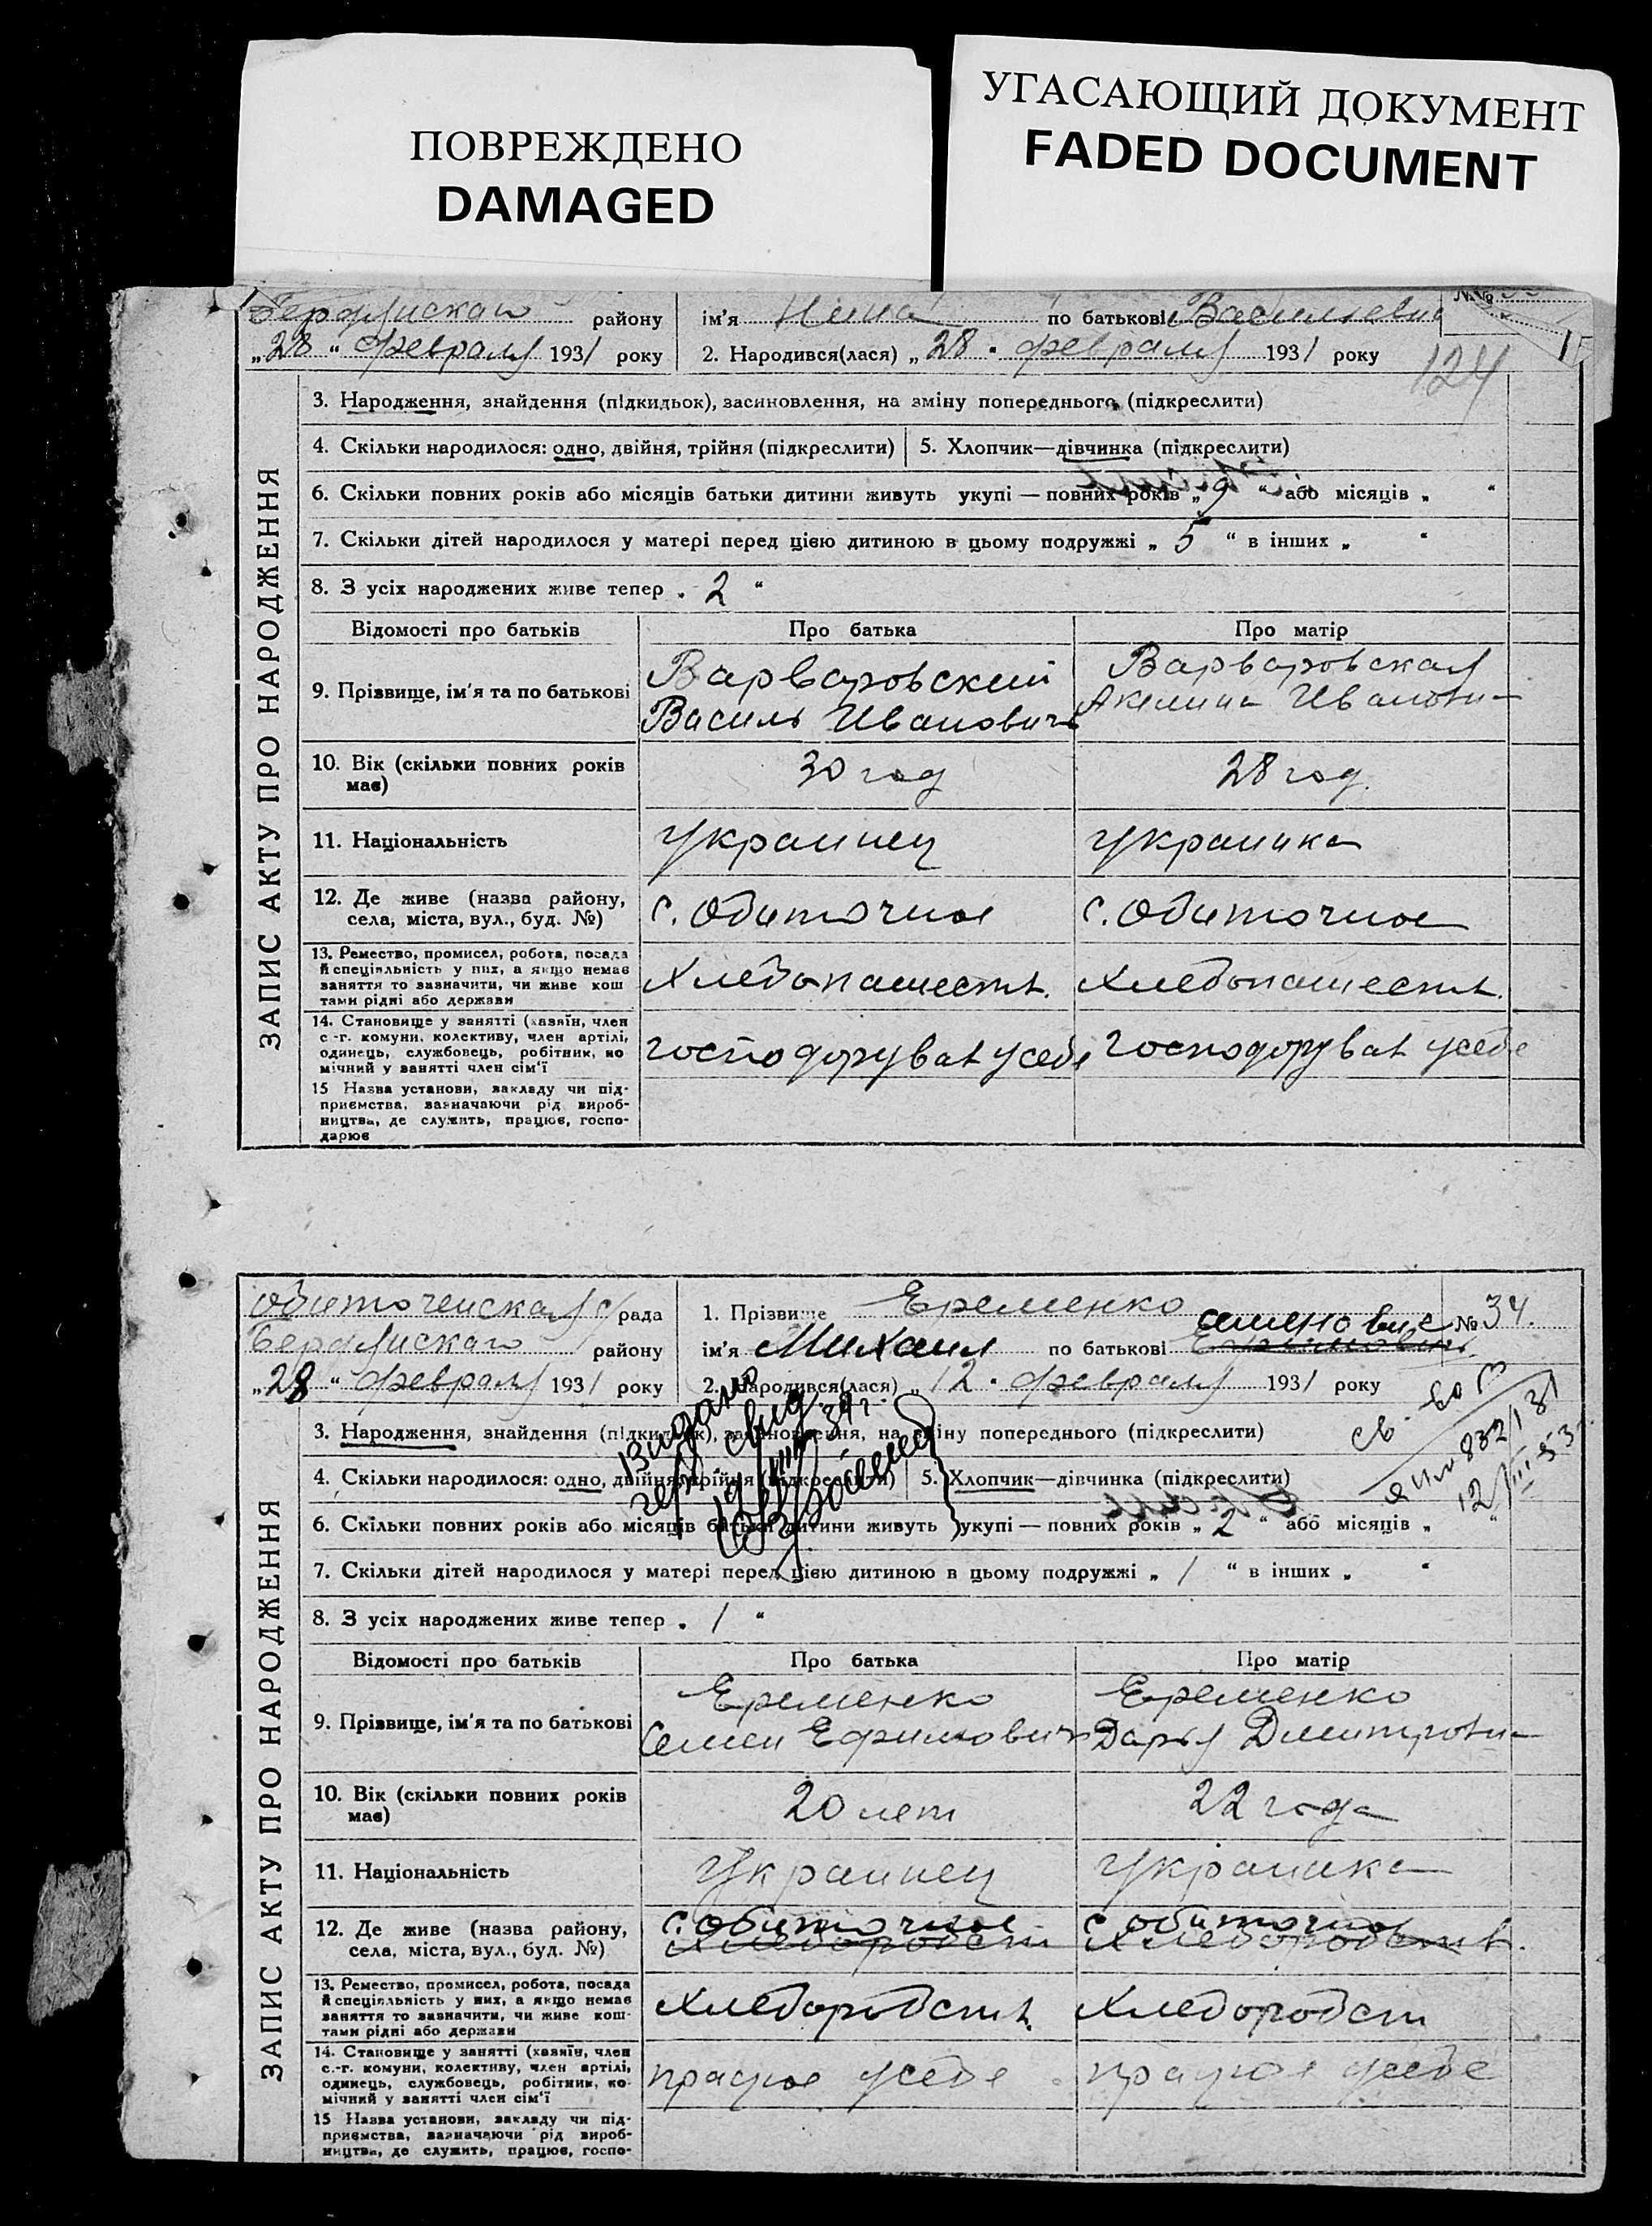 ПОВРЕЖДЕНО
DAMAGED
УГАСАЮЩИЙ ДОКУМЕНТ
FADED DOCUMENT
Бердянскаго району
ім'я Нина по батькові Васильевна
№
„28“ февраля 1931 року
2. Народився(лася) „28“ февраля 1931 року
124
ЗАПИС АКТУ ПРО НАРОДЖЕННЯ
3. Народження, знайдення (підкидьок), засиновлення, на зміну попереднього, (підкреслити)
4. Скільки народилося: одно, двійня, трійня (підкреслити) 5. Хлопчик—дівчинка (підкреслити)
6. Скільки повних років або місяців батьки дитини живуть укупі — повних років „9“ або місяців „ “
7. Скільки дітей народилося у матері перед цією дитиною в цьому подружжі „5“ в інших „ “
8. З усіх народжених живе тепер „2“
Відомості про батьків Про батька Про матір
9. Прізвище, ім'я та по батькові
Варваровский
Василь Иванович
Варваровская
Акелина Ивановн
10. Вік (скільки повних років
має)
30 год
28 год.
11. Національність
Украинец
Украинка
12. Де живе (назва району,
села, міста, вул., буд. №)
с. Обиточное
с. Обиточное
13. Ремество, промисел, робота, посада
й спеціяльність у них, а якщо немає
заняття то зазначити, чи живе кош
тами рідні або держави
Хлебопашеств.
Хлебопашеств.
14. Становище у занятті (хазяїн, член
с.-г. комуни, колективу, член артілі,
одинець, службовець, робітник, по
мічний у занятті член сім'ї
господоруват у себе
господоруват у себе
15 Назва установи, закладу чи під-
приємства, зазначаючи рід вироб-
ництва, де служить, працює, госпо-
дарює
Обиточенская с/рада
1. Прізвище Еременко
№ 34.
Бердянскаго району
ім'я Михаил по батькові Семенович
„28“ февраля 1931 року
2. Народився(лася) „12“ февраля 1931 року
ЗАПИС АКТУ ПРО НАРОДЖЕННЯ
3. Народження, знайдення (підкидьок), засиновлення, на зміну попереднього (підкреслити)
4. Скільки народилося: одно, двійня, трійня (підкреслити) 5. Хлопчик—дівчинка (підкреслити)
6. Скільки повних років або місяців батьки дитини живуть укупі — повних років „2“ або місяців „ “
7. Скільки дітей народилося у матері перед цією дитиною в цьому подружжі „1“ в інших „ “
8. З усіх народжених живе тепер „1“
Відомості про батьків Про батька Про матір
9. Прізвище, ім'я та по батькові
Еременко
Семен Ефимович
Еременко
Дарья Дмитровн
10. Вік (скільки повних років
має)
20 лет
22 года
11. Національність
Украинец
Украинка
12. Де живе (назва району,
села, міста, вул., буд. №)
с. Обиточное
с. Обиточное
13. Ремество, промисел, робота, посада
й спеціяльність у них, а якщо немає
заняття то зазначити, чи живе кош-
тами рідні або держави
Хлебородств.
Хлебородств
14. Становище у занятті (хазяїн, член
с.-г. комуни, колективу, член артілі,
одинець, службовець, робітник, по-
мічний у занятті член сім'ї
працює у себе
працює у себе
15 Назва установи, закладу чи під-
приємства, зазначаючи рід вироб-
ництва, де служить, працює, госпо-